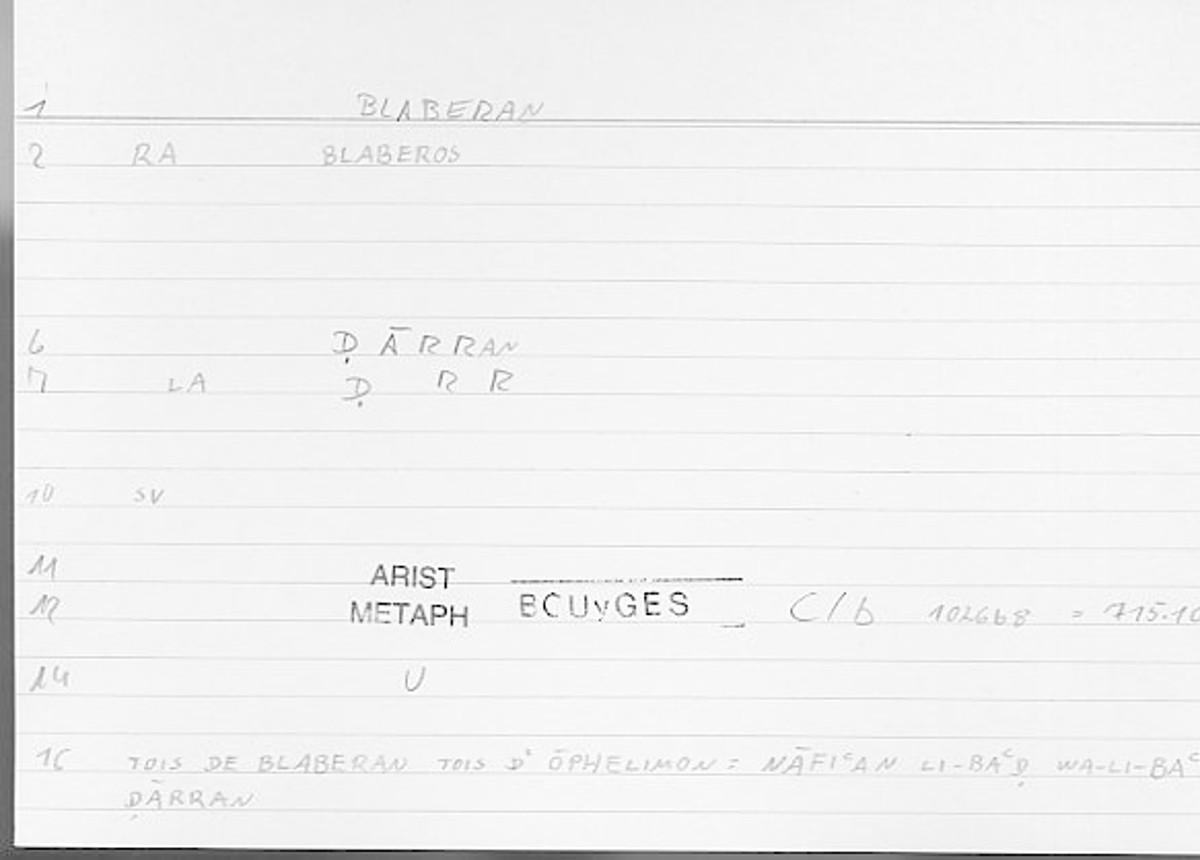 1 BLABERAN
2 RA BLABEROS
6 ḌĀRRAN
7 LA Ḍ R R
10 SV
11 ARIST
12 METAPH BOUYGES C/b 1026b8 = 715.10
14 U
16 TOIS DE BLABERAN TOIS D' ŌPHELIMON = NĀFIᶜAN LI-BAᶜḌ WA-LI-BAᶜ
ḌĀRRAN